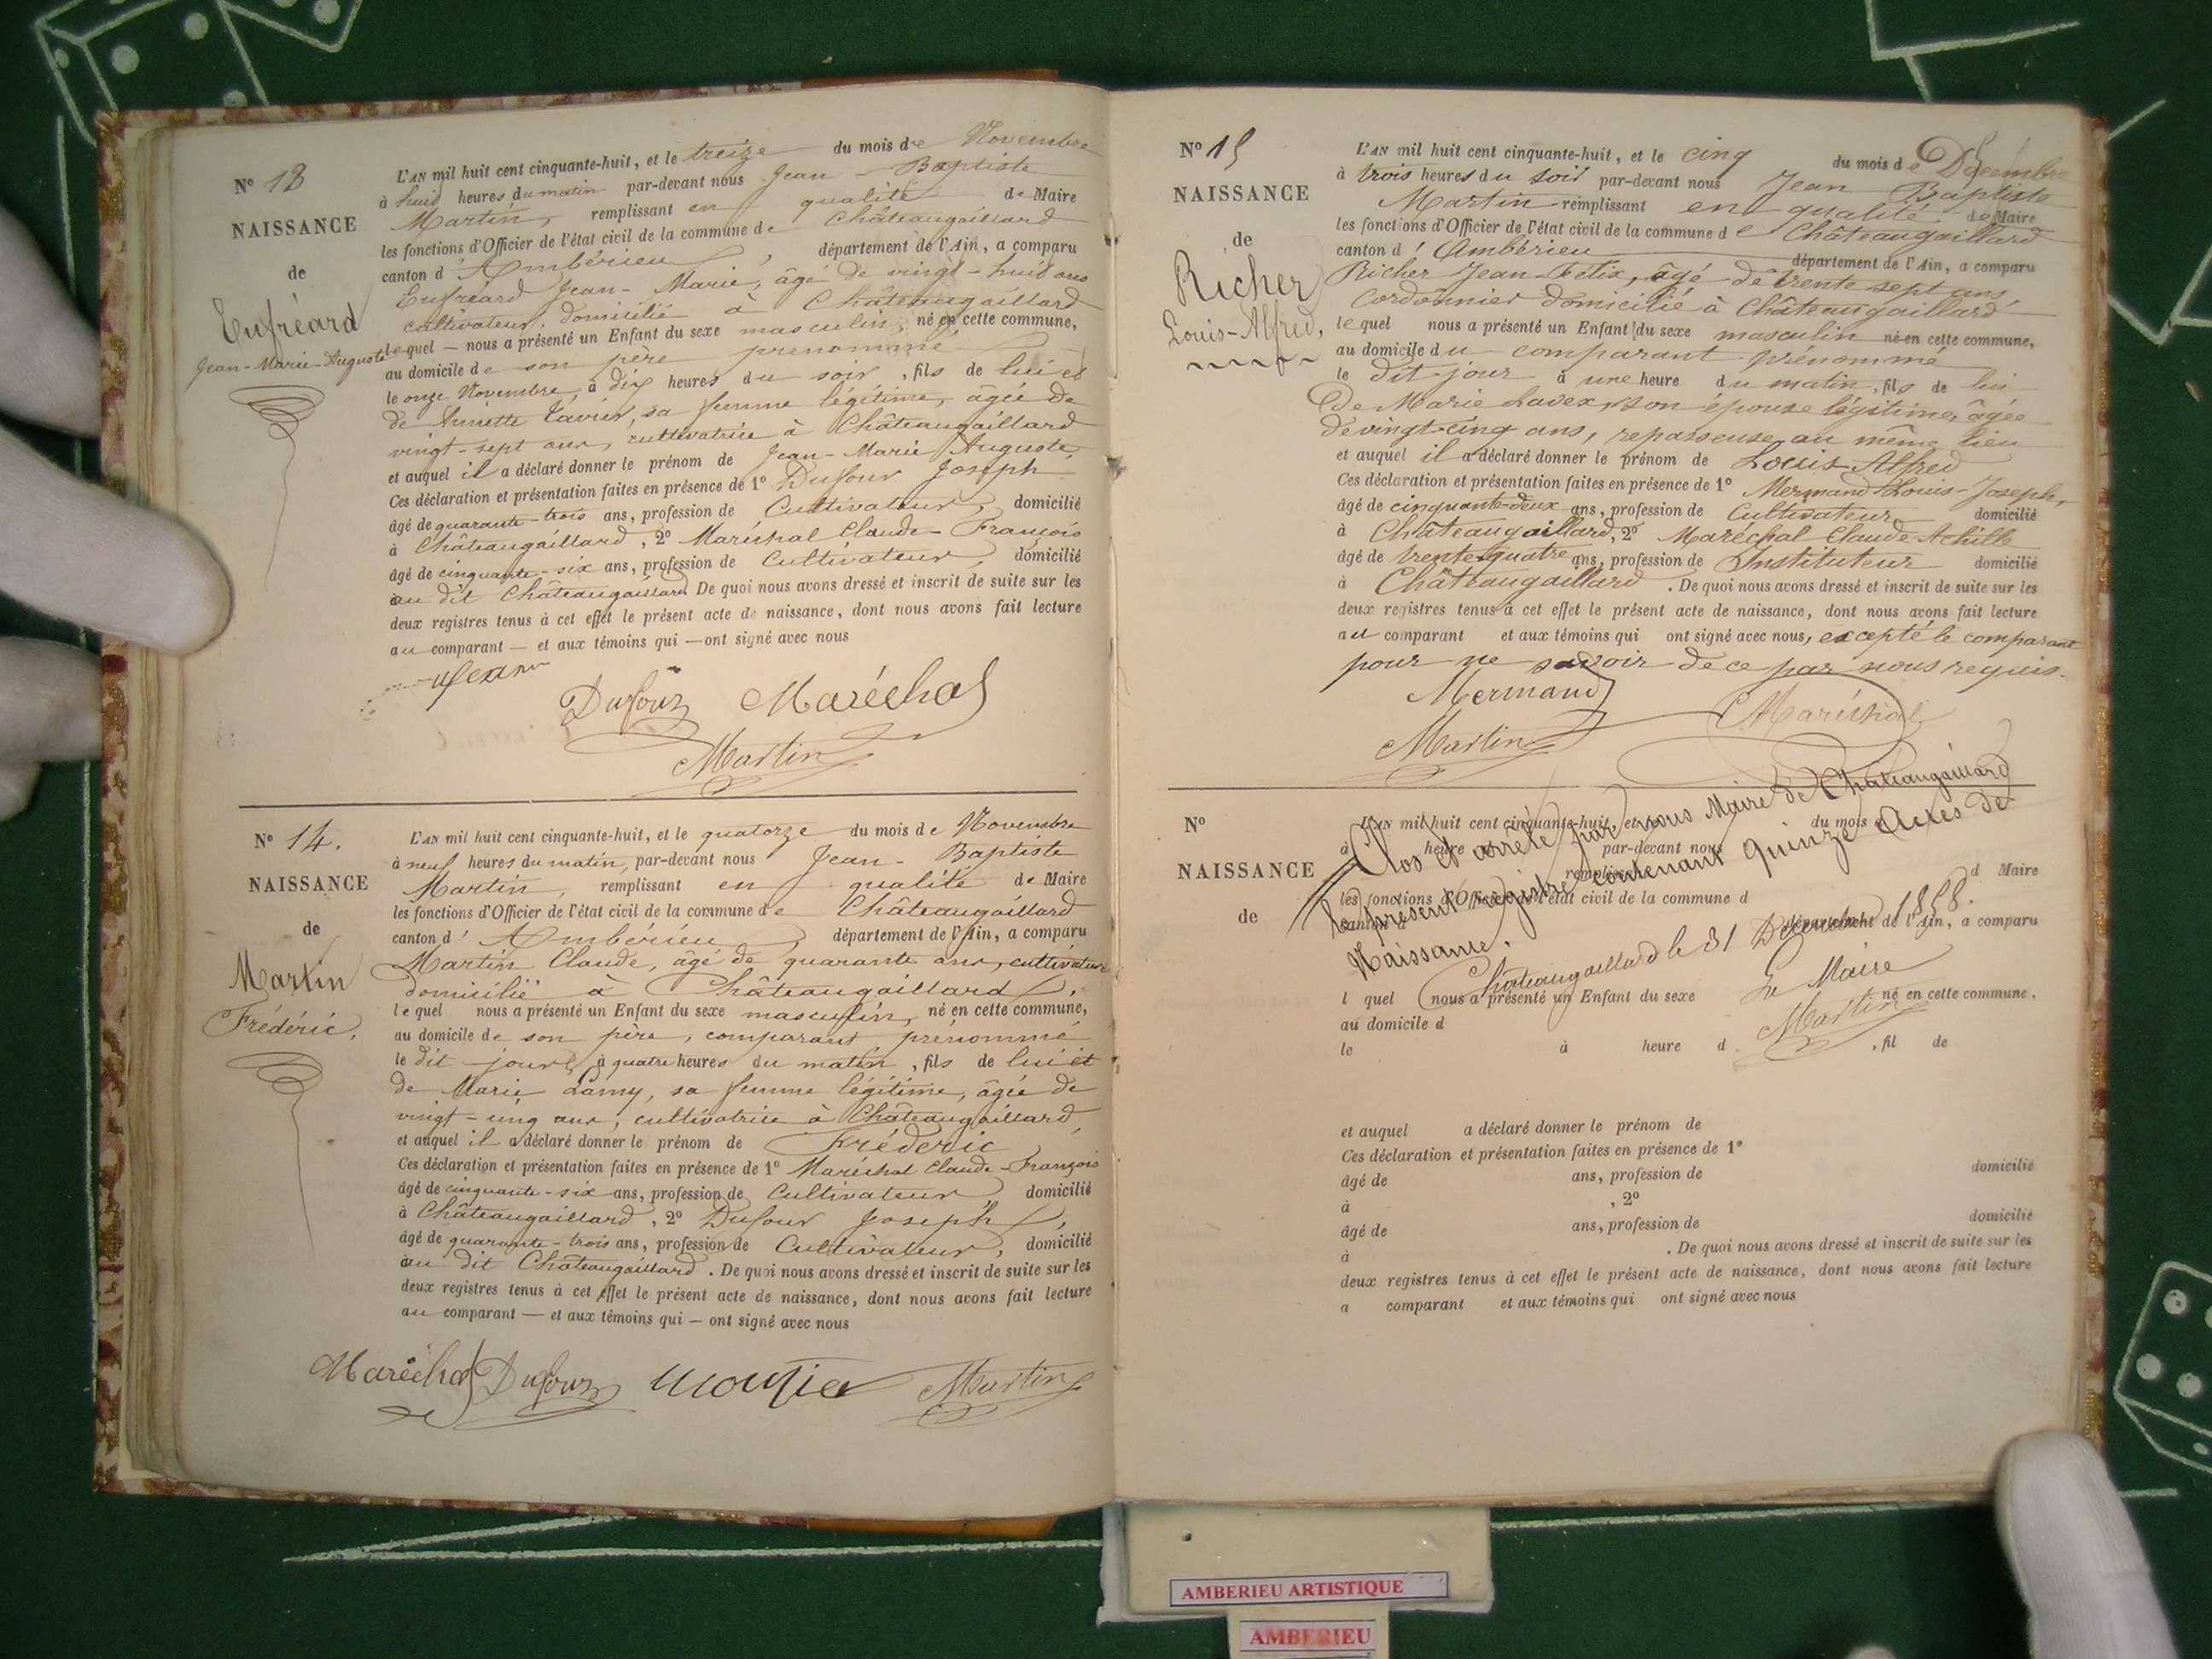 N° 13
NAISSANCE
de
Eufréard
Jean-Marie-Auguste
L'AN mil huit cent cinquante-huit, et le treize du mois de Novembre
à huit heures du matin par-devant nous Jean-Baptiste
Martin, remplissant en qualité de Maire
les fonctions d'Officier de l'état civil de la commune de Châteaugaillard
canton d'Ambérieu, département de l'Ain, a comparu
Eufréard Jean-Marie, âgé de vingt-huit ans
cultivateur, domicilié à Châteaugaillard
lequel — nous a présenté un Enfant du sexe masculin, né en cette commune,
au domicile de son père prénommé
le onze Novembre, à dix heures du soir, fils de lui et
de sa femme légitime, âgée de
vingt-sept ans, cultivatrice à Châteaugaillard
et auquel il a déclaré donner le prénom de Jean-Marie Auguste,
Ces déclaration et présentation faites en présence de 1° Dufour Joseph
âgé de quarante-trois ans, profession de Cultivateur, domicilié
à Châteaugaillard, 2° Maréchal Claude-François
âgé de cinquante-six ans, profession de Cultivateur, domicilié
au dit Châteaugaillard De quoi nous avons dressé et inscrit de suite sur les
deux registres tenus à cet effet le présent acte de naissance, dont nous avons fait lecture
au comparant — et aux témoins qui — ont signé avec nous
Dufour Maréchal
Martin
N° 14.
NAISSANCE
de
Martin
Frédéric.
L'AN mil huit cent cinquante-huit, et le quatorze du mois de Novembre
à neuf heures du matin, par-devant nous Jean-Baptiste
Martin, remplissant en qualité de Maire
les fonctions d'Officier de l'état civil de la commune de Châteaugaillard
canton d'Ambérieu, département de l'Ain, a comparu
Martin Claude, âgé de quarante ans, cultivateur
domicilié à Châteaugaillard,
lequel nous a présenté un Enfant du sexe masculin, né en cette commune,
au domicile de son père, comparant prénommé
le dit jour, à quatre heures du matin, fils de lui et
de Marie Lamy, sa femme légitime, âgée de
vingt-cinq ans, cultivatrice à Châteaugaillard,
et auquel il a déclaré donner le prénom de Fréderic
Ces déclaration et présentation faites en présence de 1° Maréchal Claude-François
âgé de cinquante-six ans, profession de Cultivateur domicilié
à Châteaugaillard, 2° Dufour Joseph,
âgé de quarante-trois ans, profession de Cultivateur, domicilié
au dit Châteaugaillard. De quoi nous avons dressé et inscrit de suite sur les
deux registres tenus à cet effet le présent acte de naissance, dont nous avons fait lecture
au comparant — et aux témoins qui — ont signé avec nous
Maréchal Dufour Martin
N° 15
NAISSANCE
de
Richer
Louis-Alfred,
L'AN mil huit cent cinquante-huit, et le cinq du mois de Décembre
à trois heures du soir par-devant nous Jean Baptiste
Martin remplissant en qualité de Maire
les fonctions d'Officier de l'état civil de la commune de Châteaugaillard
canton d'Ambérieu département de l'Ain, a comparu
Richer Jean-Felix, âgé de trente sept ans,
cordonnier domicilié à Châteaugaillard
lequel nous a présenté un Enfant du sexe masculin né en cette commune,
au domicile du comparant prénommé
le dit jour à une heure du matin, fils de lui
de Marie Lavex, son épouse légitime, âgée
de vingt-cinq ans, repasseuse au même lieu
et auquel il a déclaré donner le prénom de Louis-Alfred
Ces déclaration et présentation faites en présence de 1° Mermand Louis-Joseph,
âgé de cinquante-deux ans, profession de Cultivateur domicilié
à Châteaugaillard, 2° Maréchal Claude Achille
âgé de trente-quatre ans, profession de Instituteur domicilié
à Châteaugaillard. De quoi nous avons dressé et inscrit de suite sur les
deux registres tenus à cet effet le présent acte de naissance, dont nous avons fait lecture
au comparant et aux témoins qui ont signé avec nous, excepté le comparant
pour ne savoir de ce par nous requis.
Mermand
Martin Maréchal
N°
NAISSANCE
de
L'AN mil huit cent cinquante-huit, et le du mois d
à heure par-devant nous
remplissant d Maire
les fonctions d'Officier de l'état civil de la commune d
canton d département de l'Ain, a comparu
Clos et arrêté par nous Maire de Châteaugaillard
le présent registre contenant quinze Actes de
Naissance.
Châteaugaillard le 31 Décembre 1858.
Le Maire
Martin
l quel nous a présenté un Enfant du sexe né en cette commune,
au domicile d
le à heure d , fil de
et auquel a déclaré donner le prénom de
Ces déclaration et présentation faites en présence de 1°
âgé de ans, profession de domicilié
à , 2°
âgé de ans, profession de domicilié
à . De quoi nous avons dressé et inscrit de suite sur les
deux registres tenus à cet effet le présent acte de naissance, dont nous avons fait lecture
a comparant et aux témoins qui ont signé avec nous
AMBERIEU ARTISTIQUE
AMBERIEU